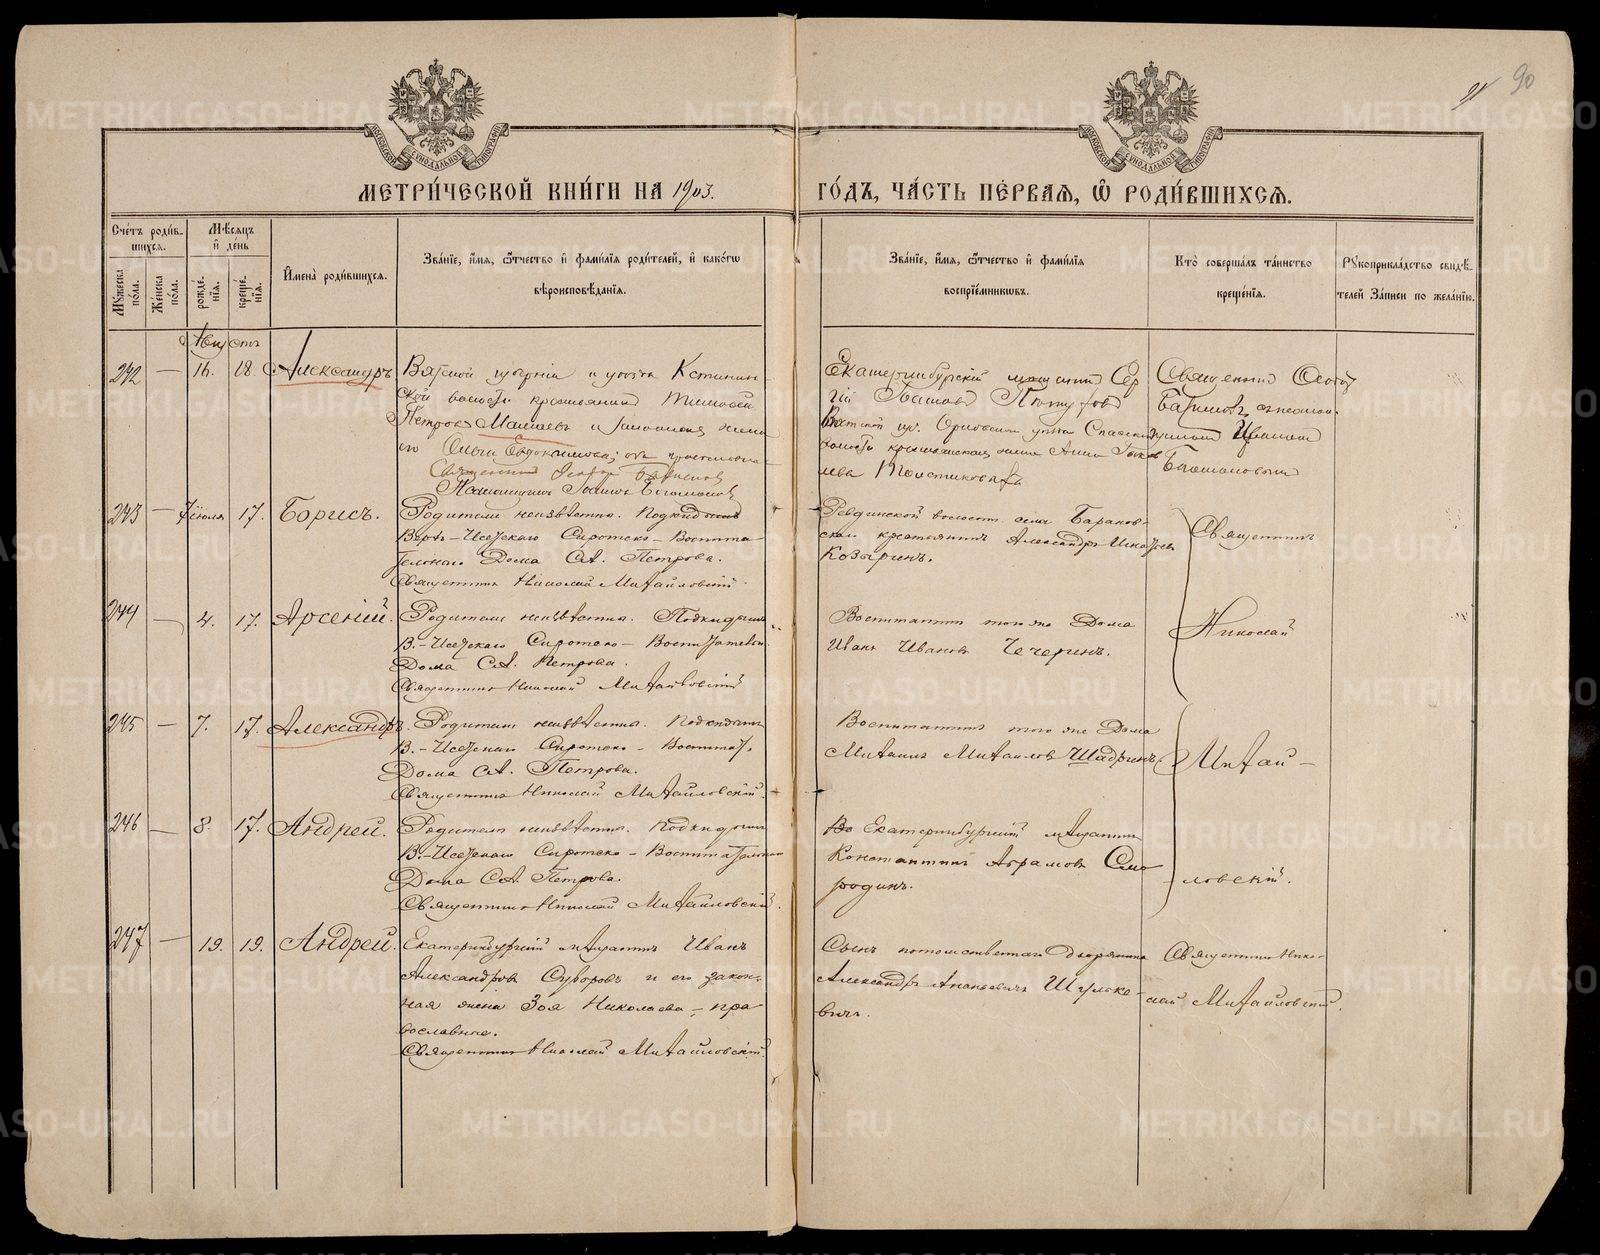 90
МОСКОВСКОЙ СѴНОДАЛЬНОЙ ТИПОГРАФІИ
МОСКОВСКОЙ СѴНОДАЛЬНОЙ ТИПОГРАФІИ
МЕТРИ́ЧЕСКОЙ КНИ́ГИ НА 1903.
ГО́ДЪ, ЧА́СТЬ ПЕ́РВАЯ, Ѽ РОДИ́ВШИХСЯ.
Сче́тъ роди́в-
шихся.
Мꙋ́жеска по́ла.
Же́нска по́ла.
Мѣ́сяцъ
и҆ де́нь
рожде́-
нїѧ.
креще́-
нїѧ.
И҆мена̀ роди́вшихся.
Зва́нїе, и҆́мя, ѻ҆́тчество и҆ фами́лїя роди́телей, и҆ како́гѡ
вѣроисповѣ́данїя.
Зва́нїе, и҆́мя, ѻ҆́тчество и҆ фами́лїя
воспрїе́мникѡвъ.
Кто̀ соверша́лъ та́инство
креще́нїя.
Рꙋкоприкла́дство свидѣ́-
телей за́писи по жела́нїю.
Августъ
242 — 16. 18. Александръ
Вятской губерніи и уѣзда Кстинин-
ской волости крестьянинъ Тимофей
Петровъ Малаевъ и законная жена
его Ольга Евдокимова; оба православные
Священникъ
Псаломщикъ Іоаннъ
Екатеринбургскій мѣщанинъ Сер
гій
Вятской губ. Орловскаго уѣзда Спасской
волости крестьянская жена Анна
Священникъ
243 — 7 іюля 17. Борисъ.
Родители неизвѣстны. Подкидышъ
Верхъ-Исетскаго Сиротско-Воспита
тельнаго Дома С.А. Петрова.
Священникъ Николай Михайловскій.
Ревдинской волости села
крестьянинъ Александръ
Козыринъ.
Священникъ
244 — 4. 17. Арсеній.
Родители неизвѣстны. Подкидышъ
В.-Исетскаго Сиротско-Воспитательн.
Дома С.А. Петрова.
Священникъ Николай Михайловскій
Воспитанникъ того же Дома
Иванъ Ивановъ Чечеринъ.
Николай
245 — 7. 17. Александръ.
Родители неизвѣстны. Подкидышъ
В.-Исетскаго Сиротско-Воспитат.
Дома С.А. Петрова.
Священникъ Николай Михайловскій.
Воспитанникъ того же Дома
Михаилъ Михайловъ Шадринъ.
Михай-
246 — 8. 17. Андрей.
Родители неизвѣстны. Подкидышъ
В.-Исетскаго Сиротско-Воспитательнаго
Дома С.А. Петрова.
Священникъ Николай Михайловскій.
Во Екатеринбургскій мѣщанинъ
Константинъ Абрамовъ Смо
родинъ.
ловскій.
247 — 19. 19. Андрей.
Екатеринбургскій мѣщанинъ Иванъ
Александровъ Суворовъ и его закон-
ная жена Зоя Николаева — пра
вославные.
Священникъ Николай Михайловскій.
Сынъ потомственнаго дворянина
Александръ Ананьевичъ Шулске-
вичъ.
Священникъ Нико-
лай Михайловскій.
METRIKI.GASO-URAL.RU